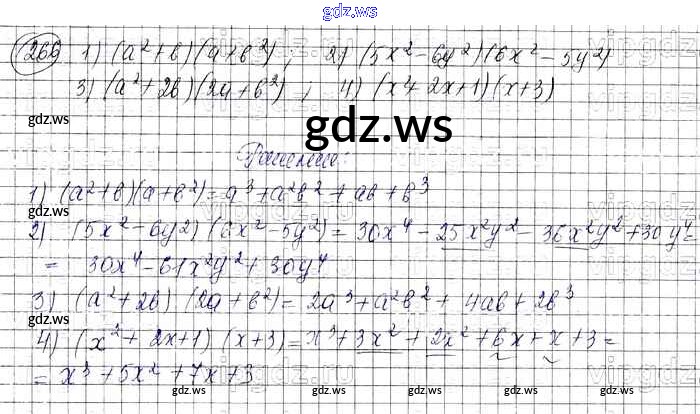 gdz.ws
266 1) (a²+b)(a+b²) ; 2) (5x²-6y²)(6x²-5y²)
3) (a²+2b)(2a+b²) ; 4) (x²+2x+1)(x+3)
gdz.ws
Решение:
1) (a²+b)(a+b²)=a³+a²b²+ab+b³
2) (5x²-6y²)(6x²-5y²)=30x⁴-25x²y²-36x²y²+30y⁴=
= 30x⁴-61x²y²+30y⁴
3) (a²+2b)(2a+b²)=2a³+a²b²+4ab+2b³
4) (x²+2x+1)(x+3)=x³+3x²+2x²+6x+x+3=
= x³+5x²+7x+3